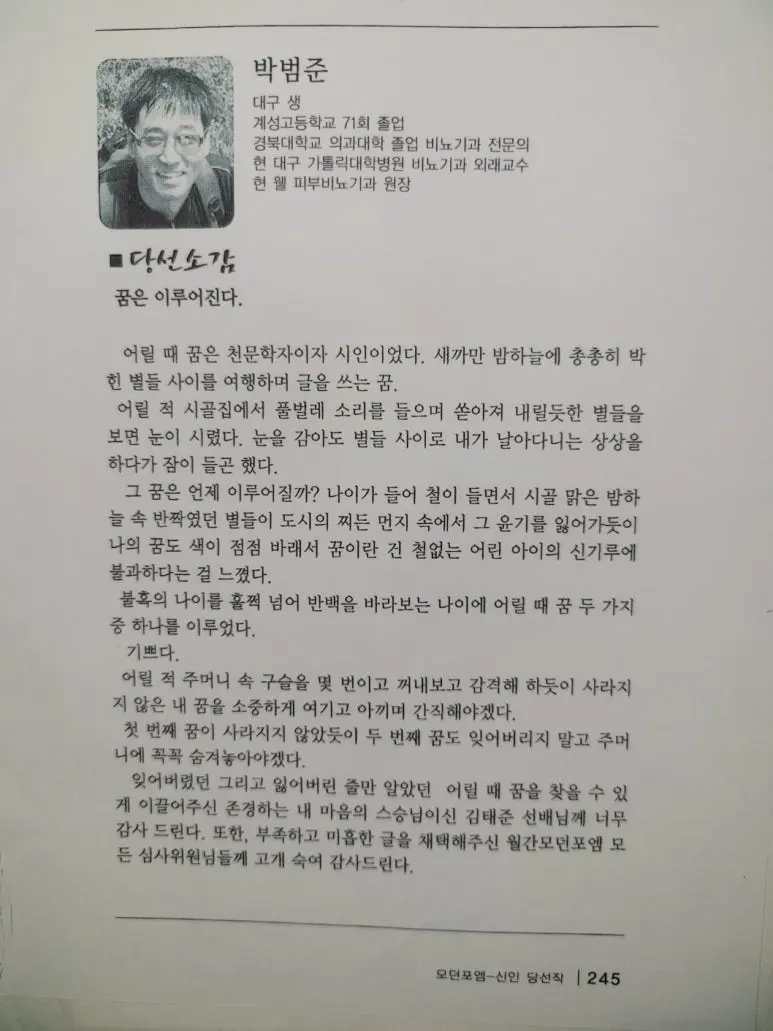 박범준
대구 생
계성고등학교 71회 졸업
경북대학교 의과대학 졸업 비뇨기과 전문의
현 대구 가톨릭대학병원 비뇨기과 외래교수
현 웰 피부비뇨기과 원장
■ 당선소감
꿈은 이루어진다.
어릴 때 꿈은 천문학자이자 시인이었다. 새까만 밤하늘에 총총히 박
힌 별들 사이를 여행하며 글을 쓰는 꿈.
어릴 적 시골집에서 풀벌레 소리를 들으며 쏟아져 내릴듯한 별들을
보면 눈이 시렸다. 눈을 감아도 별들 사이로 내가 날아다니는 상상을
하다가 잠이 들곤 했다.
그 꿈은 언제 이루어질까? 나이가 들어 철이 들면서 시골 맑은 밤하
늘 속 반짝였던 별들이 도시의 찌든 먼지 속에서 그 윤기를 잃어가듯이
나의 꿈도 색이 점점 바래서 꿈이란 건 철없는 어린 아이의 신기루에
불과하다는 걸 느꼈다.
불혹의 나이를 훌쩍 넘어 반백을 바라보는 나이에 어릴 때 꿈 두 가지
중 하나를 이루었다.
기쁘다.
어릴 적 주머니 속 구슬을 몇 번이고 꺼내보고 감격해 하듯이 사라지
지 않은 내 꿈을 소중하게 여기고 아끼며 간직해야겠다.
첫 번째 꿈이 사라지지 않았듯이 두 번째 꿈도 잊어버리지 말고 주머
니에 꼭꼭 숨겨놓아야겠다.
잊어버렸던 그리고 잃어버린 줄만 알았던 어릴 때 꿈을 찾을 수 있
게 이끌어주신 존경하는 내 마음의 스승님이신 김태준 선배님께 너무
감사 드린다. 또한, 부족하고 미흡한 글을 채택해주신 월간모던포엠 모
든 심사위원님들께 고개 숙여 감사드린다.
모던포엠-신인 당선작 | 245